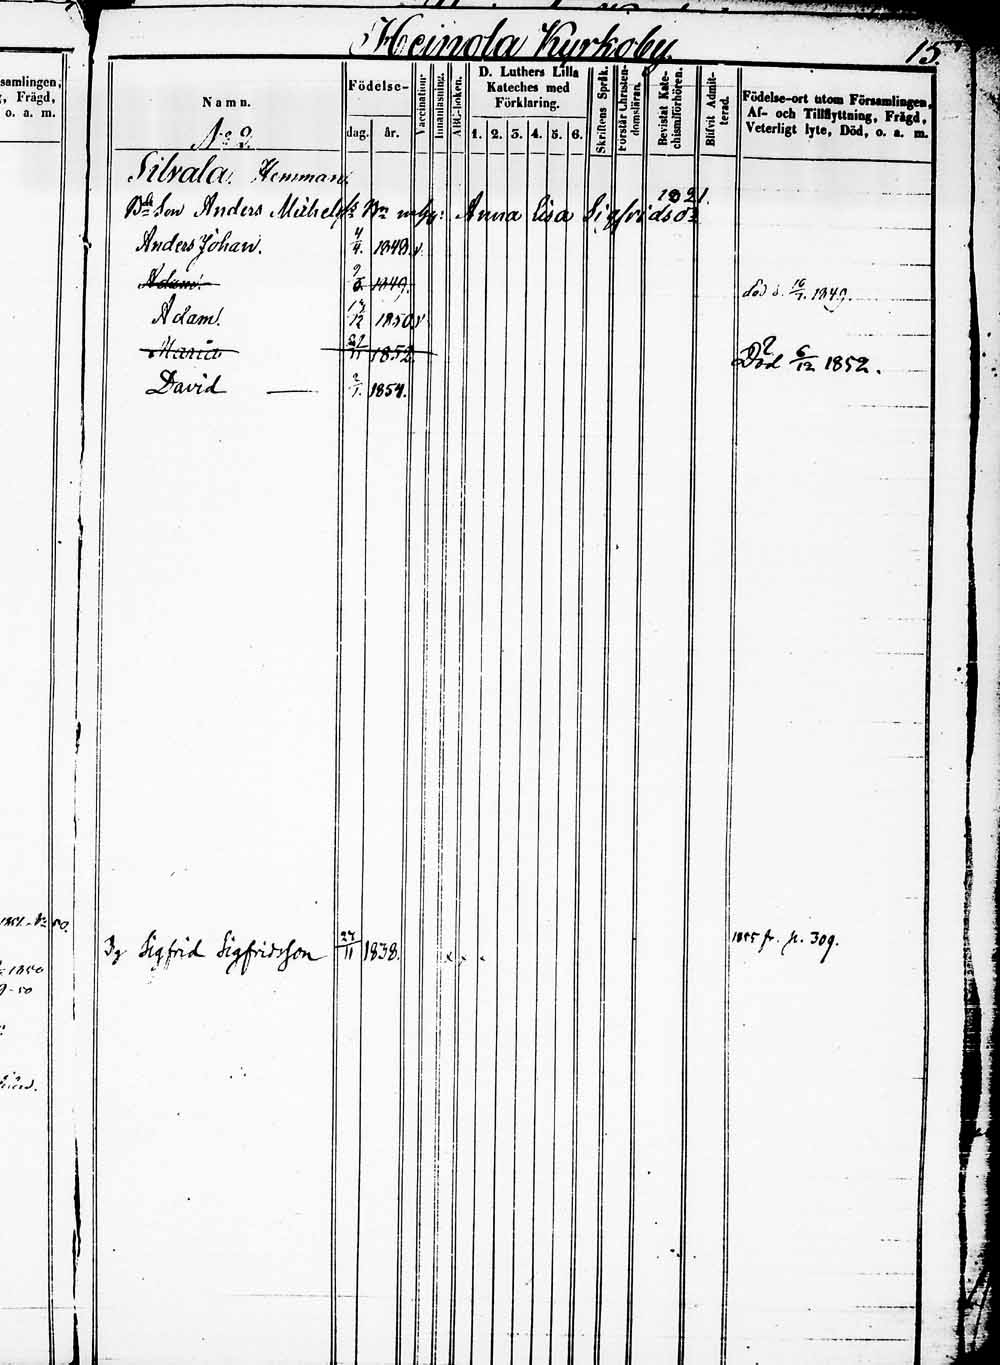 Heinola Kyrkoby.
15.
samlingen,
, Frägd,
o. a. m.
Namn.
Födelse-
dag. år.
Vaccination.
Innanläsning.
ABC-boken.
D. Luthers Lilla
Kateches med
Förklaring.
1. 2. 3. 4. 5. 6.
Skriftens Språk.
Förstår Christen-
domsläran.
Bevistat Kate-
chismiförhören.
Blifvit Admit-
terad.
Födelse-ort utom Församlingen,
Af- och Tillflyttning, Frägd,
Veterligt lyte, Död, o. a. m.
No 2
Silvala. Hemman.
1821.
Son Anders Anna Lisa Sigfridsdr
Anders Johan. 4/4. 1848. v
Adam. 1849. död d. 10/7. 1849.
Adam. 1850. v
Maria 1852. Död 6/12 1852.
David — 2/1. 1854.
50.
Sigfrid Sigfridsson 27/11 1838. 1855 fr. p. 309.
1850
9-50